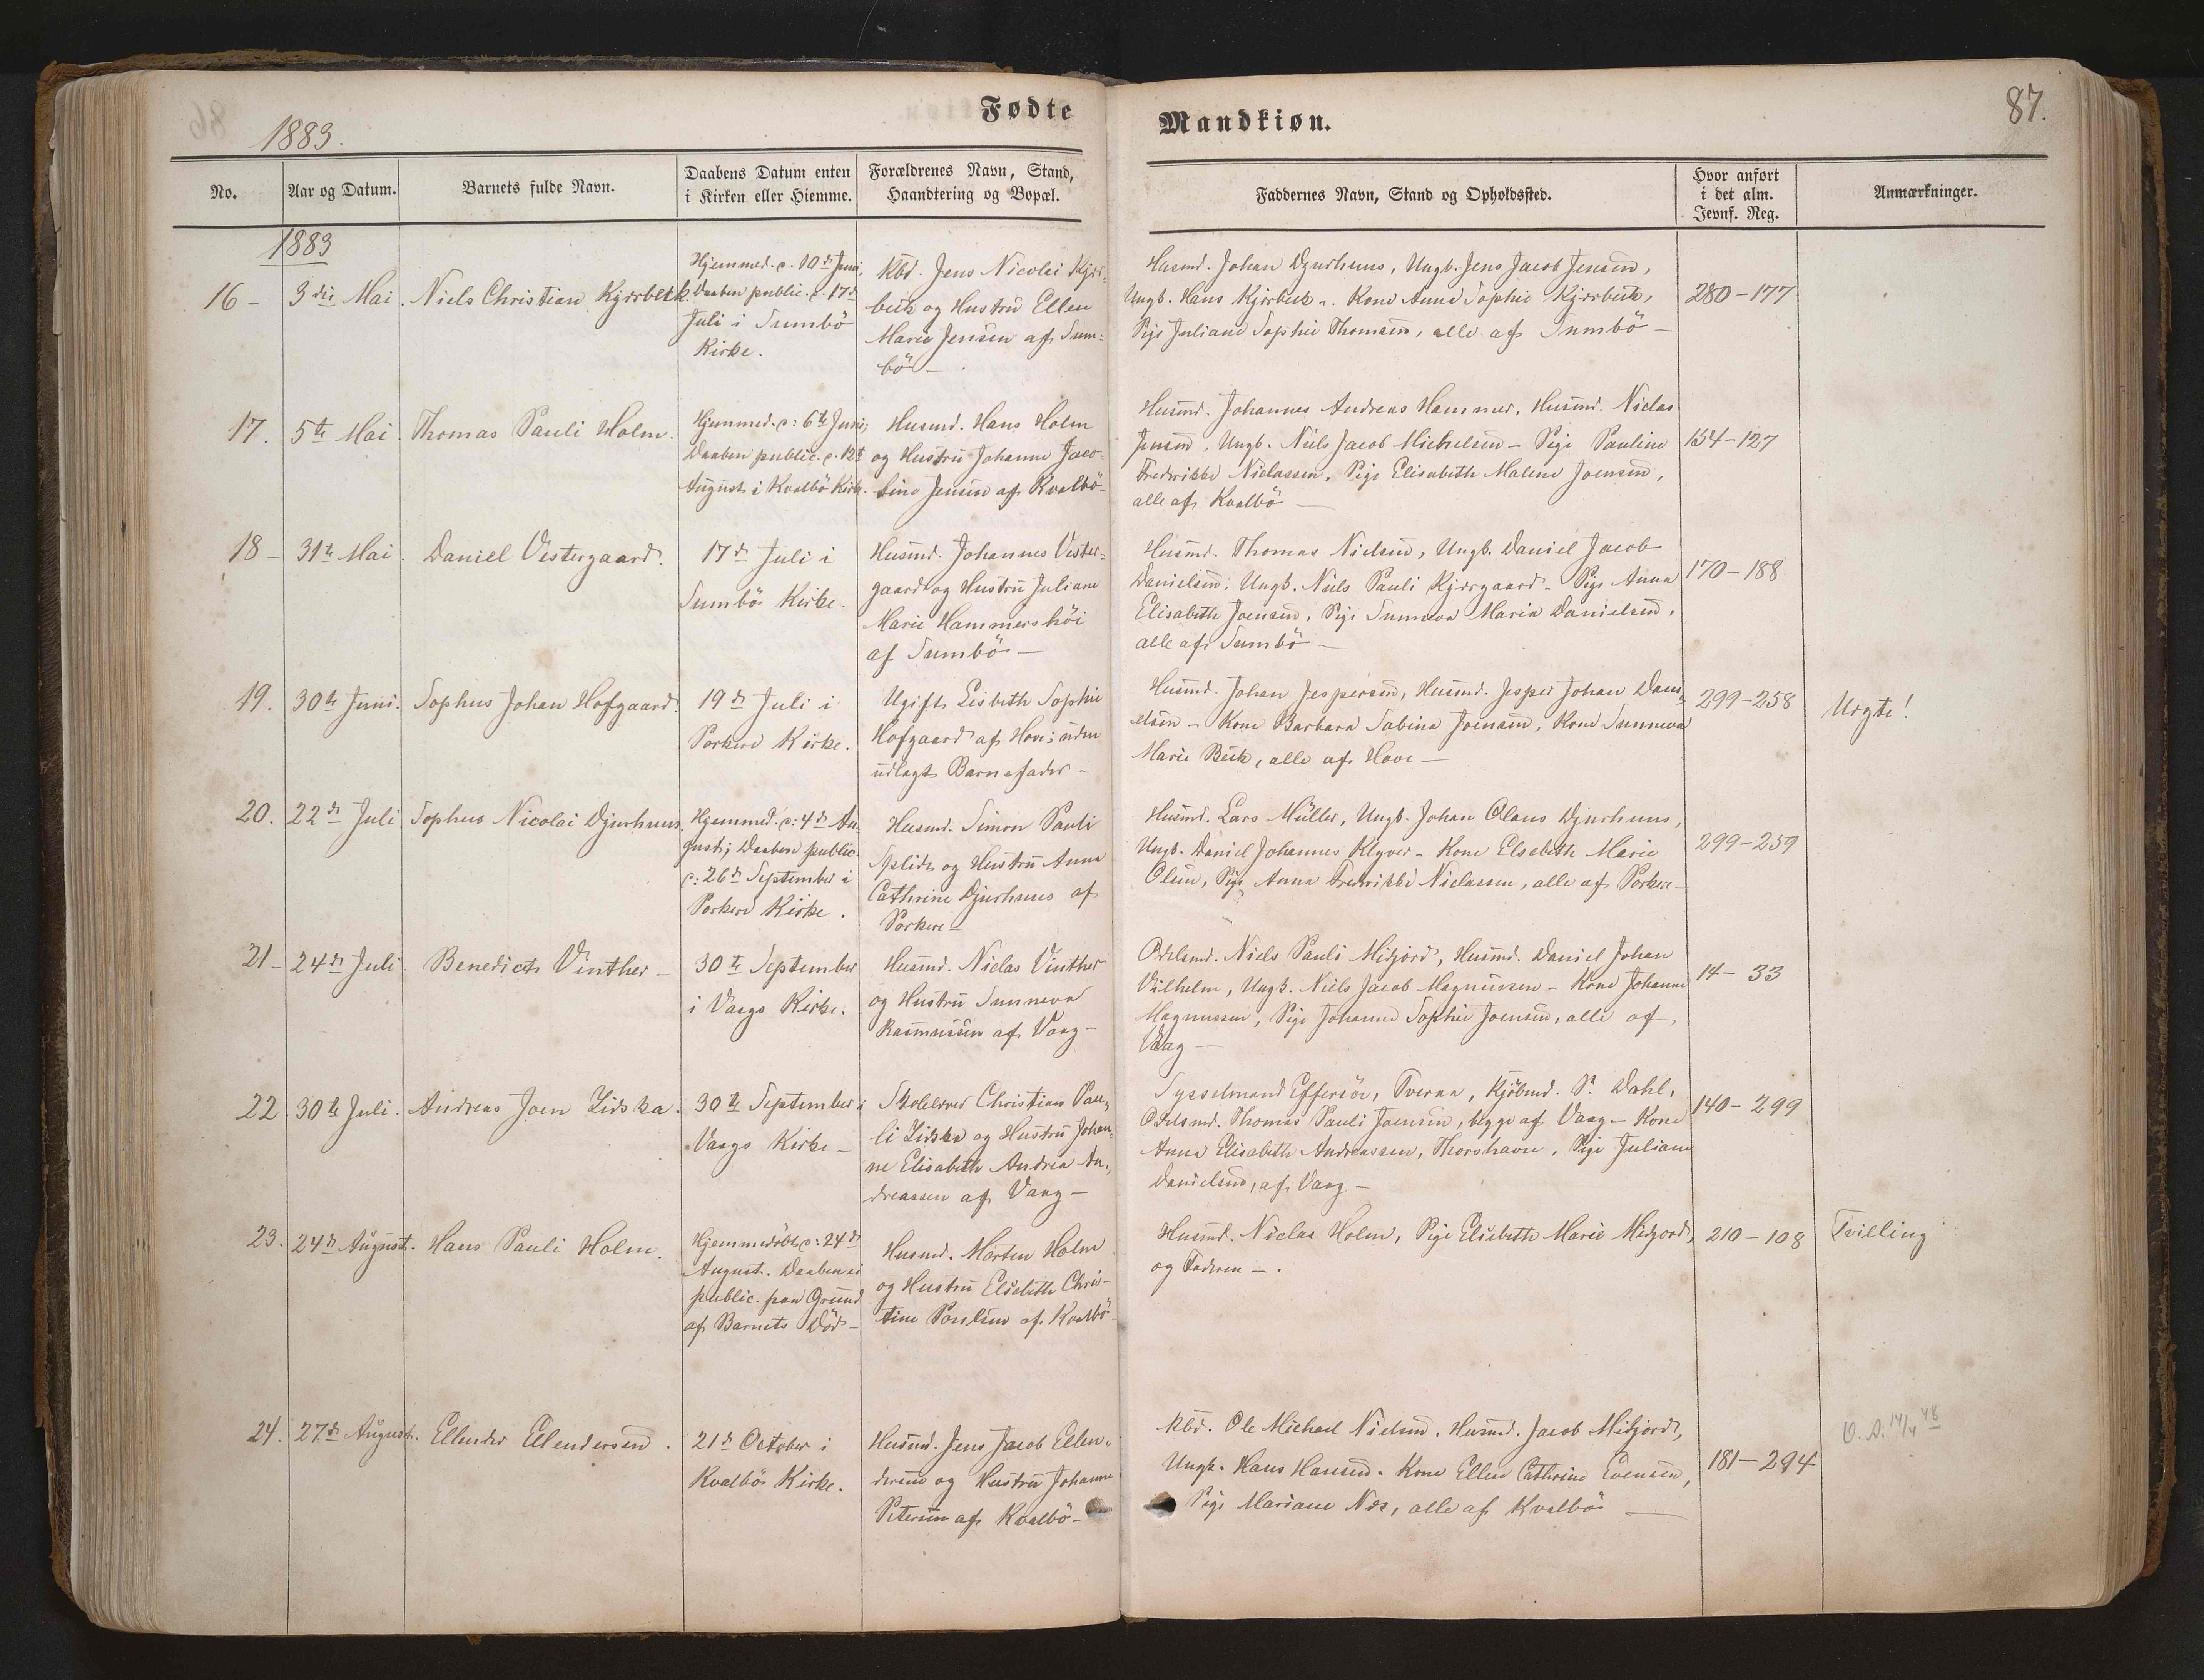 1883.
Fødte
No.
Aar og Datum.
Barnets fulde Navn.
Daabens Datum enten
i Kirken eller Hiemme.
Forældrenes Navn, Stand,
Haandtering og Bopæl.
1883
16 -
3die Mai.
Niels Christian Kjærbeck
Hjemmed. c. 10de Juni,
Daaben public. c. 17de
Juli i Sumbö
Kirke.
Kbd. Jens Nicolai Kjær-
beck og Hustru Ellen
Marie Jensen af Sum-
bö -
17.
5te Mai.
Thomas Pauli Holm.
Hjemmed. c: 6te Juni,
Daaben public. c. 12te
August i Kvalbö Kirke.
Husmd. Hans Holm
og Hustru Johanne Jaco-
bine Jensen af Kvalbö -
18 -
31te Mai.
Daniel Vestergaard.
17de Juli i
Sumbö Kirke.
Husmd. Johannes Vester-
gaard og Hustru Juliane
Marie Hammershöi
af Sumbö -
19.
30te Juni.
Sophus Johan Hofgaard.
19de Juli i
Porkere Kirke.
Ugift Lisbeth Sophie
Hofgaard af Hove; uden
udlagt Barnefader -
20.
22de Juli
Sophus Nicolai Djurhuus.
Hjemmed. c: 4de Au-
gust; Daaben public.
c: 26de September i
Porkere Kirke.
Husmd. Simon Pauli
Splidt og Hustru Anna
Cathrine Djurhuus af
Porkere -
21 -
24de Juli.
Benedict Vinther -
30te September
i Vaags Kirke.
Husmd. Niclas Vinther
og Hustru Sunneva
Rasmussen af Vaag -
22.
30te Juli.
Andreas Joen Lidska.
30te September i
Vaags Kirke -
Skolelærer Christian Pau-
li Lidska og Hustru Johan-
ne Elisabeth Andrea An-
dreassen af Vaag -
23.
24de August.
Hans Pauli Holm.
Hjemmedöbt c: 24de
August. Daaben ei
public. paa Grund
af Barnets Död -
Husmd. Morten Holm
og Hustru Elsebeth Chri-
stine Poulsen af Kvalbö -
24.
27de August.
Ellender Ellendersen.
21de October i
Kvalbö Kirke.
Husmd. Jens Jacob Ellen-
dersen og Hustru Johanne
Petersen af Kvalbö -
Mandkiøn.
87.
Faddernes Navn, Stand og Opholdssted.
Hvor anført
i det alm.
Jevnf. Reg.
Anmærkninger.
Husmd. Johan Djurhuus, Ungk. Jens Jacob Jensen,
Ungk. Hans Kjærbeck -. Kone Anna Sophie Kjærbeck,
Pige Juliane Sophie Thomsen, alle af Sumbö -
280-177
Husmd. Johannes Andreas Hammer, Husmd. Niclas
Jensen, Ungk. Niels Jacob Michelsen - Pige Pauline
Frederikke Niclassen, Pige Elisabeth Malene Joensen,
alle af Kvalbö -
154-127
Husmd. Thomas Nielsen, Ungk. Daniel Jacob
Danielsen, Ungk. Niels Pauli Kjærgaard - Pige Anna
Elisabeth Joensen, Pige Sunneva Maria Danielsen,
alle af Sumbö -
170-188
Husmd. Johan Jespersen, Husmd. Jesper Johan Dani-
elsen - Kone Barbara Sabina Joensen, Kone Sunneva
Marie Beck, alle af Hove -
299-258
Uægte!
Husmd. Lars Müller, Ungk. Johan Olaus Djurhuus,
Ungk. Daniel Johannes Klyver - Kone Elsebeth Marie
Olsen, Pige Anna Frederikke Niclassen, alle af Porkere -
299-259
Odelsmd. Niels Pauli Midjord, Husmd. Daniel Johan
Vilhelm, Ungk. Niels Jacob Magnussen - Kone Johanne
Magnussen, Pige Johanne Sophie Joensen, alle af
Vaag -
14-33
Sysselmand Effersöe, Tveraa, Kjöbmd. P. Dahl,
Odelsmd. Thomas Pauli Joensen, begge af Vaag - Kone
Anna Elisabeth Andreassen, Thorshavn, Pige Juliane
Danielsen, af Vaag -
140-299
Husmd. Niclas Holm, Pige Elsebeth Marie Midjord,
og Faderen -.
210-108
Tvilling
Kbd. Ole Michael Nielsen, Husmd. Jacob Midjord,
Ungk. Hans Hansen. Kone Ellen Cathrine Evensen,
Pige Mariane Næs, alle af Kvalbö -
181-294
14/4 48